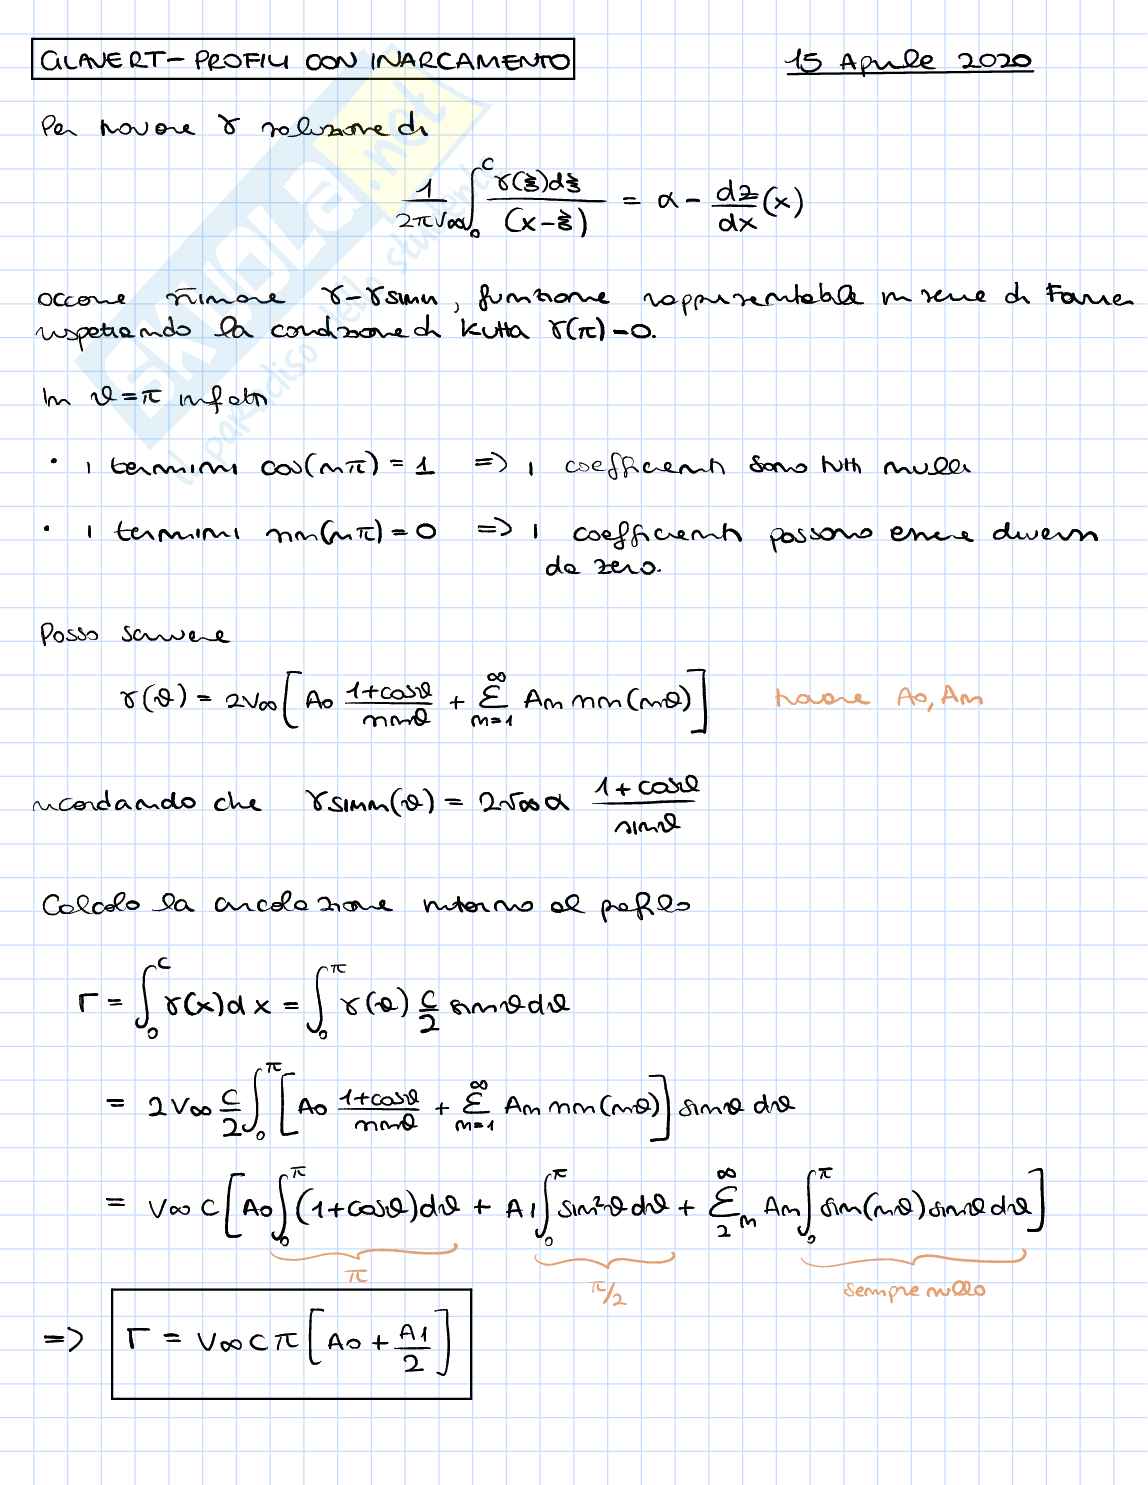 GLAVERT - PROFILI CON INARCAMENTO
15 Aprile 2020
Per trovare γ soluzione di
1/(2πV∞) ∫₀ᶜ γ(ξ)dξ/(x-ξ) = α - dz/dx (x)
occorre stimare γ-γsimm, funzione rappresentabile in serie di Fourier
rispettando la condizione di Kutta γ(π)=0.
In θ=π infatti
• i termini cos(nπ) = 1 => i coefficienti sono tutti nulli
• i termini sin(nπ) = 0 => i coefficienti possono essere diversi
da zero.
Posso scrivere
γ(θ) = 2V∞ [A0 (1+cosθ)/sinθ + Σ_{n=1}^{∞} An sin(nθ)] trovare A0, An
ricordando che γsimm(θ) = 2V∞α (1+cosθ)/sinθ
Calcolo la circolazione intorno al profilo
Γ = ∫₀ᶜ γ(x)dx = ∫₀^π γ(θ) c/2 sinθdθ
= 2V∞ c/2 ∫₀^π [A0 (1+cosθ)/sinθ + Σ_{n=1}^{∞} An sin(nθ)] sinθ dθ
= V∞ C [A0 ∫₀^π (1+cosθ)dθ + A1 ∫₀^π sin²θdθ + Σ₂^∞ n An ∫₀^π sin(nθ)sinθdθ]
π π/2 sempre nullo
=> Γ = V∞ C π [A0 + A1/2]
SKUOLA.net